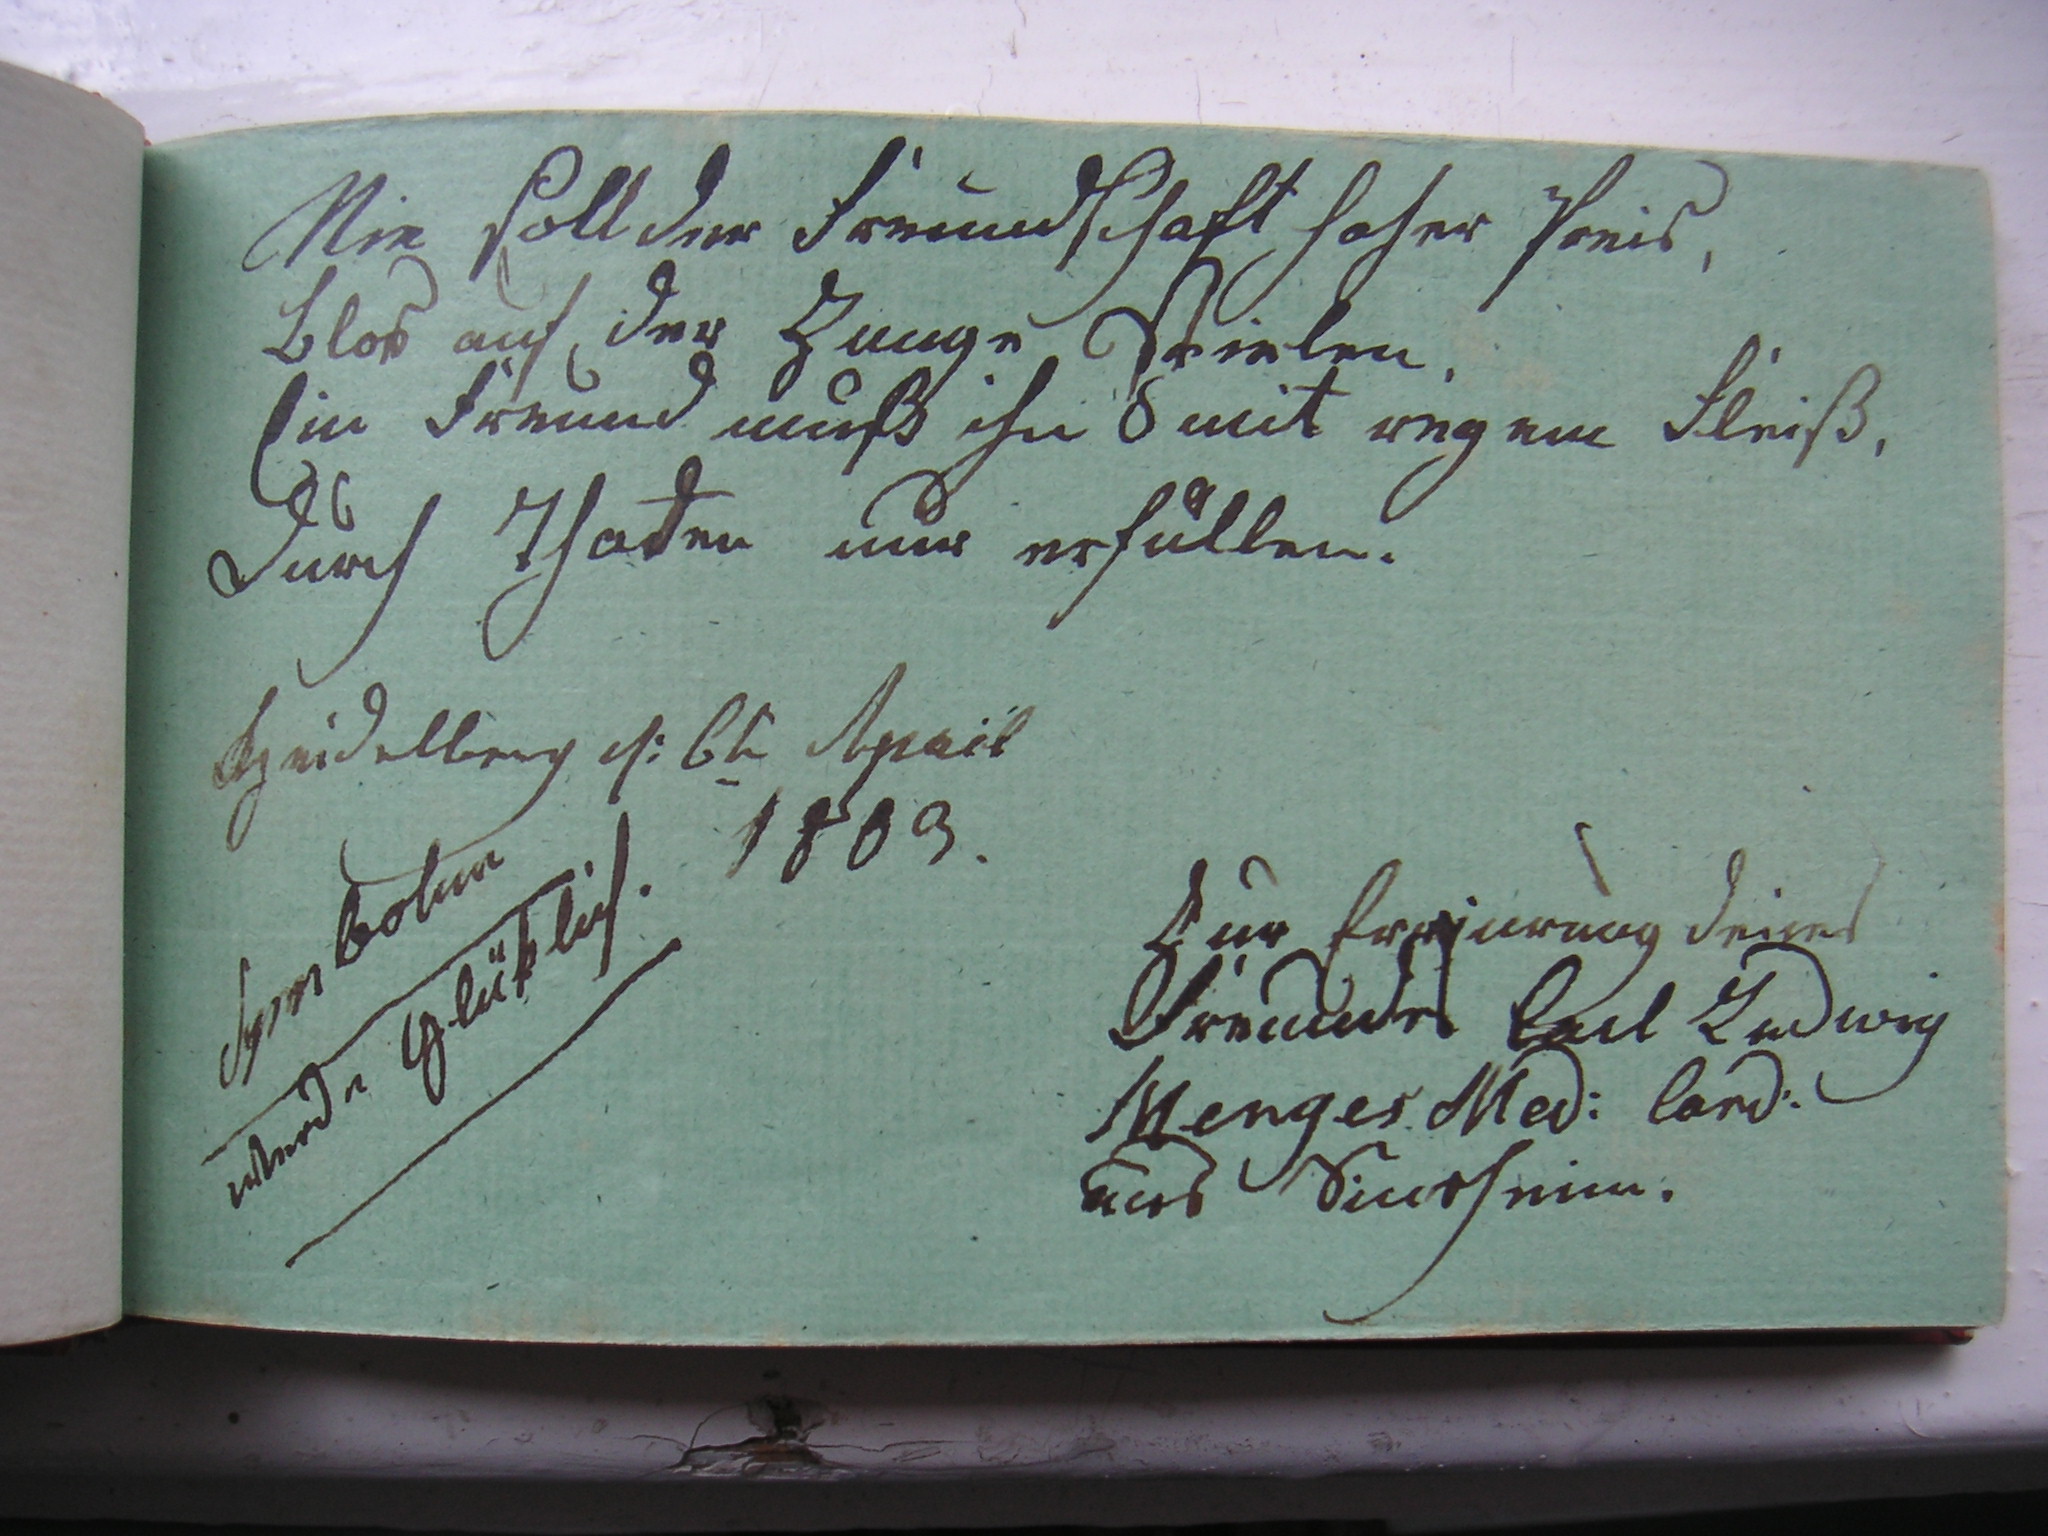 Nie soll der Freundschaft hoher Preis,
blos auf der Zunge Spielen,
Ein Freund muß ihn mit regem Fleiß,
Durch Thaten nur erfüllen.
Heidelberg d: 6t April
1803.
Symbolum
werde Glüklich.
Zur Errinrung deines
Freundes Carl Ludwig
Menges Med: Cand:
aus Sinsheim.